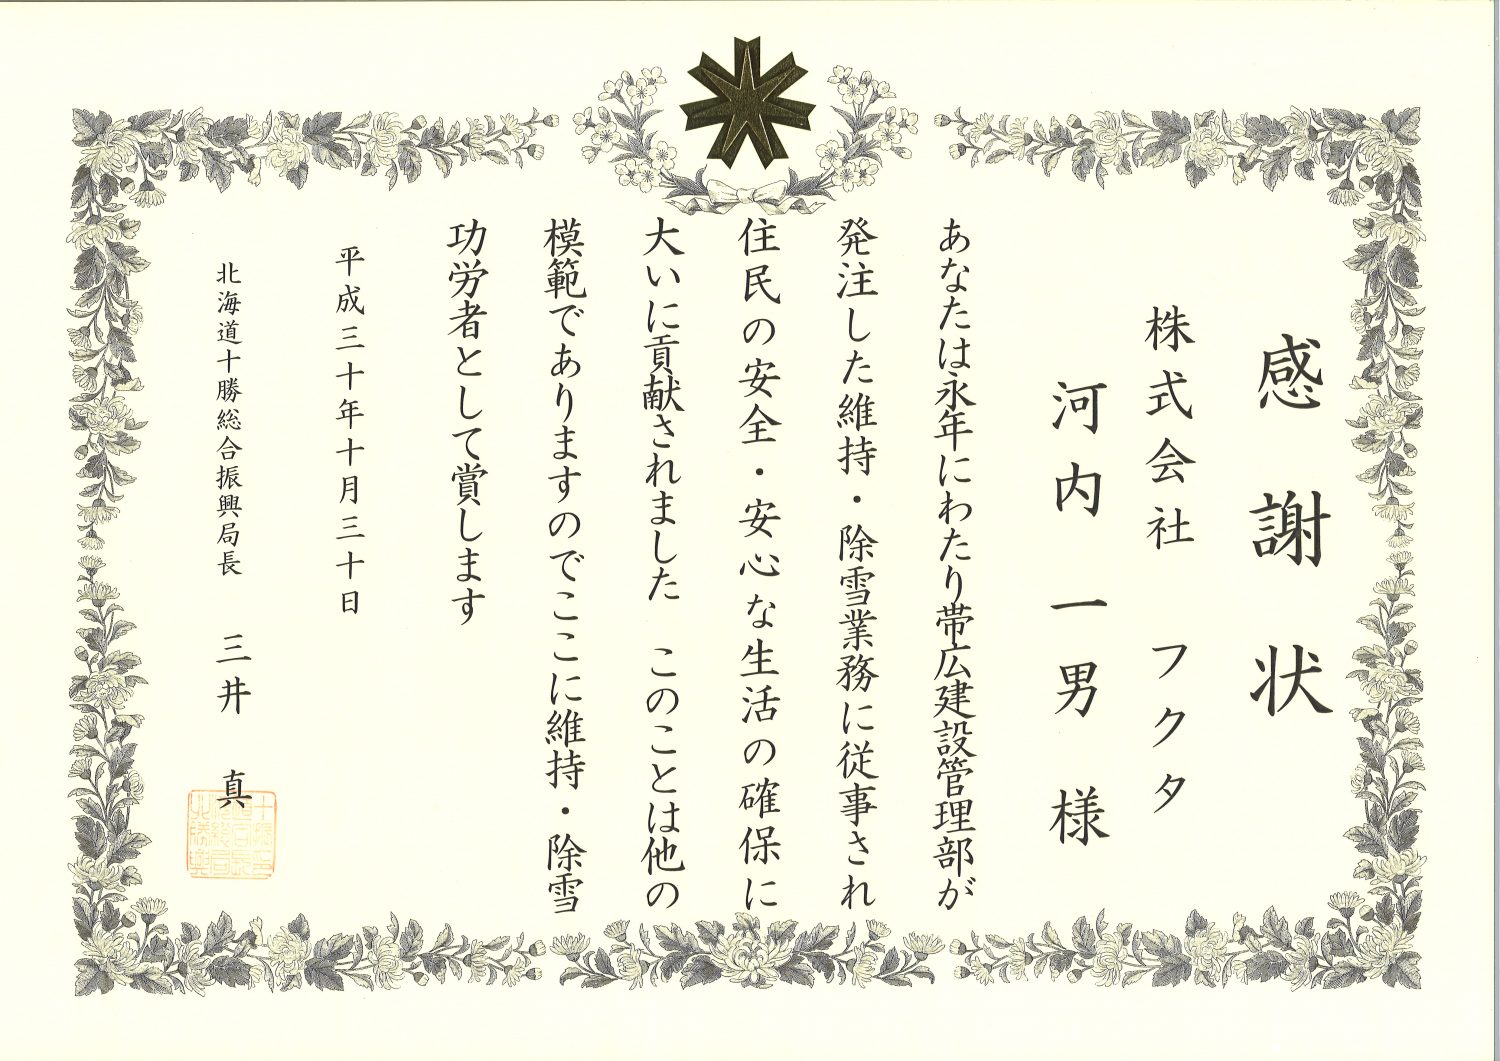 感謝状
株式会社 フクタ
河内一男 様
あなたは永年にわたり帯広建設管理部が
発注した維持・除雪業務に従事され
住民の安全・安心な生活の確保に
大いに貢献されました このことは他の
模範でありますのでここに維持・除雪
功労者として賞します
平成三十年十月三十日
北海道十勝総合振興局長 三井 真